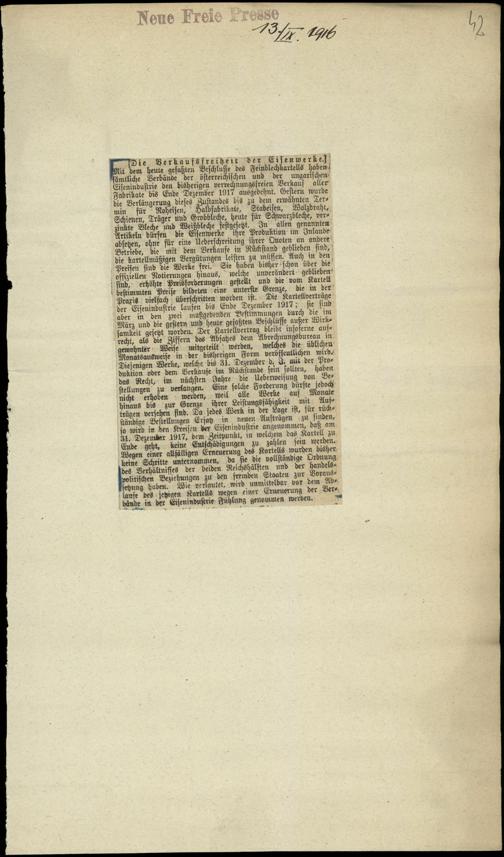 Neue Freie Presse
13./IX. 1916
42
[Die Verkaufsfreiheit der Eisenwerke.]
Mit dem heute gefaßten Beschlusse des Feinblechkartells haben
sämtliche Verbände der österreichischen und der ungarischen
Eisenindustrie den bisherigen verrechnungsfreien Verkauf aller
Fabrikate bis Ende Dezember 1917 ausgedehnt. Gestern wurde
die Verlängerung dieses Zustandes bis zu dem erwähnten Ter-
min für Roheisen, Halbfabrikate, Stabeisen, Walzdraht,
Schienen, Träger und Grobbleche, heute für Schwarzbleche, ver-
zinkte Bleche und Weißbleche festgesetzt. In allen genannten
Artikeln dürfen die Eisenwerke ihre Produktion im Inlande
absetzen, ohne für eine Ueberschreitung ihrer Quoten an andere
Betriebe, die mit dem Verkaufe in Rückstand geblieben sind,
die kartellmäßigen Vergütungen leisten zu müssen. Auch in den
Preisen sind die Werke frei. Sie haben bisher schon über die
offiziellen Notierungen hinaus, welche unverändert geblieben
sind, erhöhte Preisforderungen gestellt und die vom Kartell
bestimmten Preise bildeten eine unterste Grenze, die in der
Praxis vielfach überschritten worden ist. Die Kartellverträge
der Eisenindustrie laufen bis Ende Dezember 1917; sie sind
aber in den zwei maßgebenden Bestimmungen durch die im
März und die gestern und heute gefaßten Beschlüsse außer Wirk-
samkeit gesetzt worden. Der Kartellvertrag bleibt insoferne auf-
recht, als die Ziffern des Absatzes dem Abrechnungsbureau in
gewohnter Weise mitgeteilt werden, welches die üblichen
Monatsausweise in der bisherigen Form veröffentlichen wird.
Diejenigen Werke, welche bis 31. Dezember d. J. mit der Pro-
duktion oder dem Verkaufe im Rückstande sein sollten, haben
das Recht, im nächsten Jahre die Ueberweisung von Be-
stellungen zu verlangen. Eine solche Forderung dürfte jedoch
nicht erhoben werden, weil alle Werke auf Monate
hinaus bis zur Grenze ihrer Leistungsfähigkeit mit Auf-
trägen versehen sind. Da jedes Werk in der Lage ist, für rück-
ständige Bestellungen Ersatz in neuen Aufträgen zu finden,
so wird in den Kreisen der Eisenindustrie angenommen, daß am
31. Dezember 1917, dem Zeitpunkt, in welchem das Kartell zu
Ende geht, keine Entschädigungen zu zahlen sein werden.
Wegen einer allfälligen Erneuerung des Kartells wurden bisher
keine Schritte unternommen, da sie die vollständige Ordnung
des Verhältnisses der beiden Reichshälften und der handels-
politischen Beziehungen zu den fremden Staaten zur Voraus-
setzung haben. Wie verlautet, wird unmittelbar vor dem Ab-
laufe des jetzigen Kartells wegen einer Erneuerung der Ver-
bände in der Eisenindustrie Fühlung genommen werden.